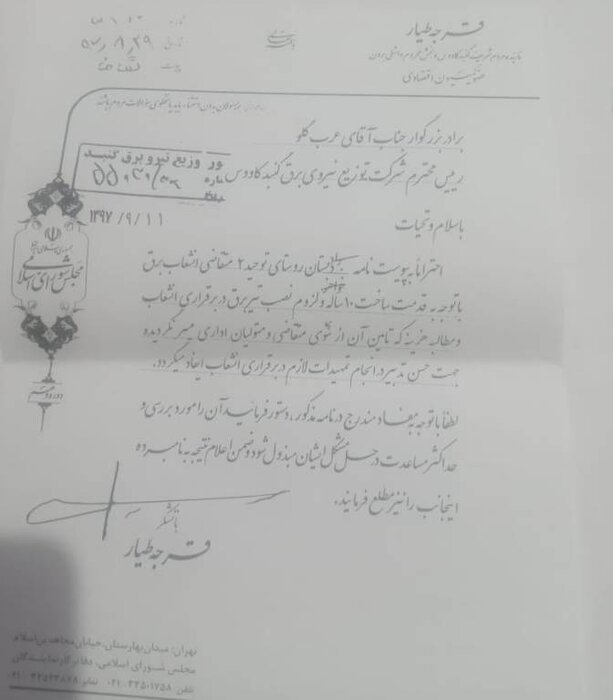 قرجه طیار
نماینده مردم شریف گنبدکاووس
عضو کمیسیون اقتصادی
شماره
تاریخ
پیوست
برادر بزرگوار جناب آقای عرب کلو
رییس محترم شرکت توزیع نیروی برق گنبدکاووس
توزیع نیرو برق گنبد
شماره
۱۳۹۷/۹/۱۱
باسلام و تحیات
احتراماً به پیوست نامه دهستان روستای توحید ۲ متقاضی انشعاب برق
باتوجه به قدمت ساخت ۱۰ ساله و لزوم نصب تیر برق در برقراری انشعاب
و مطالبه هزینه که تامین آن از سوی متقاضی و متولیان اداری میسر نگردیده
جهت حسن تدبیر در انجام تمهیدات لازم در برقراری انشعاب ایفاد میگردد.
لطفا باتوجه به مفاد مندرج در نامه مذکور، دستور فرمائید آن را مورد بررسی و
حداکثر مساعدت در حل مشکل ایشان مبذول شود و ضمن اعلام نتیجه به نامبرده
اینجانب را نیز مطلع فرمایند.
باتشکر
قرجه طیار
مجلس شورای اسلامی
دوره دهم
تهران: میدان بهارستان، خیابان مجاهدین اسلام
مجلس شورای اسلامی، دفاتر کار نمایندگان